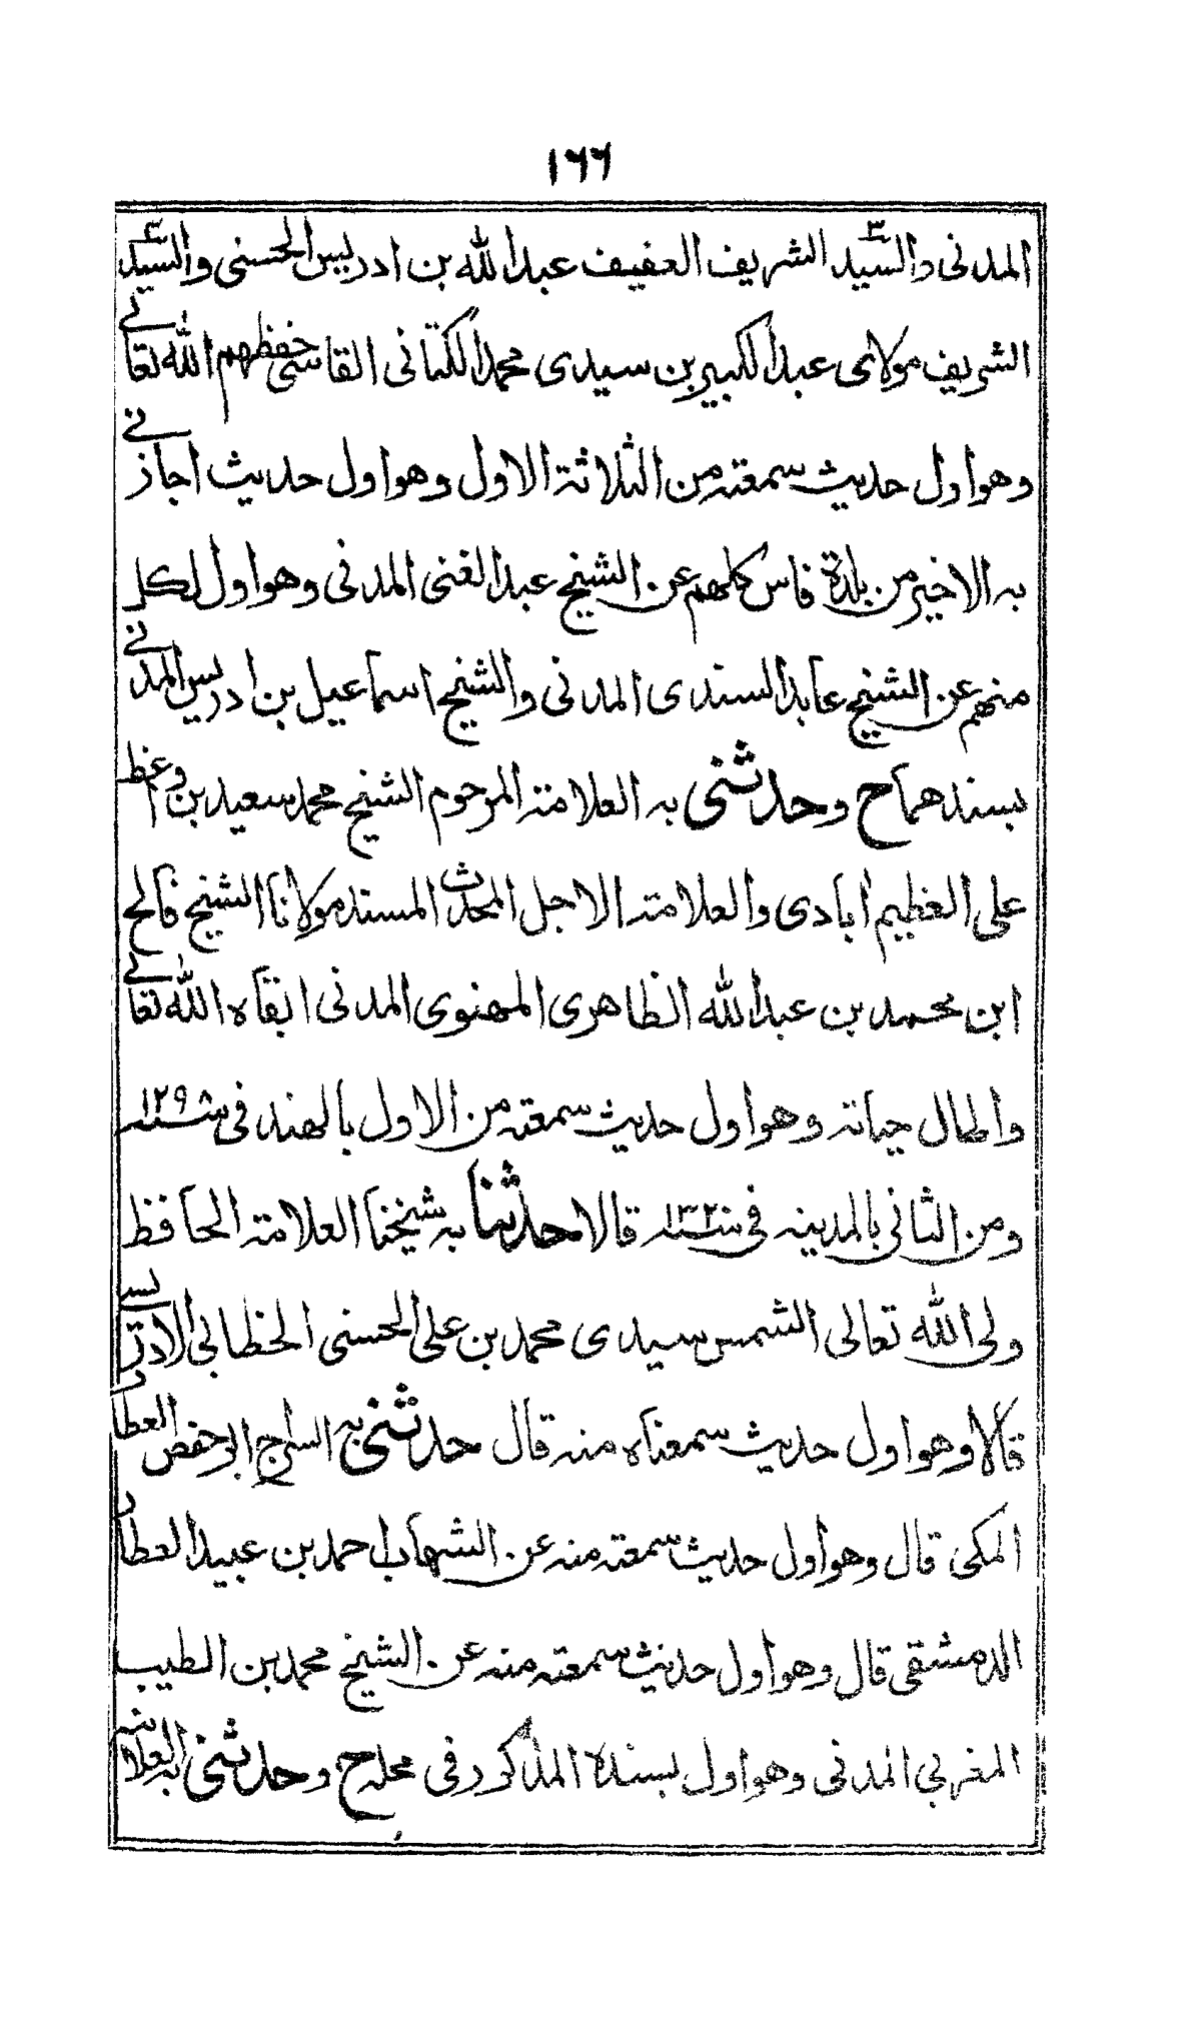 ١٦٦
المدنى والسيد الشريف العفيف عبدالله بن ادريس الحسنى والسيد
الشريف مولاى عبدالكبير بن سيدى محمد الكتانى الفاسى حفظهم الله تعالى
وهو اول حديث سمعته من الثلاثة الاول وهو اول حديث اجازنى
به الاخير من بلدة فاس كلهم عن الشيخ عبدالغنى المدنى وهو اول لكل
منهم عن الشيخ عابد السندى المدنى والشيخ اسماعيل بن ادريس المدنى
بسندهما ح وحدثنى به العلامة المرحوم الشيخ محمد سعيد بن واعظ
على العظيم ابادى والعلامة الاجل المحدث المسند مولانا الشيخ فالح
ابن محمد بن عبدالله الظاهرى المهنوى المدنى ابقاه الله تعالى
واطال حياته وهو اول حديث سمعته من الاول بالهند فى سنة ١٢٩٨
ومن الثانى بالمدينه فى سنة ١٣٢٠ قالا حدثنا به شيخنا العلامة الحافظ
ولى الله تعالى الشمس سيدى محمد بن على الحسنى الخطابى الادريسى
قالا وهو اول حديث سمعناه منه قال حدثنى به السراج ابو حفص العطار
المكى قال وهو اول حديث سمعته منه عن الشهاب احمد بن عبيد العطار
الدمشقى قال وهو اول حديث سمعته منه عن الشيخ محمد بن الطيب
المغربى المدنى وهو اول بسنده المذكور فى محله ح وحدثنى به العلامة